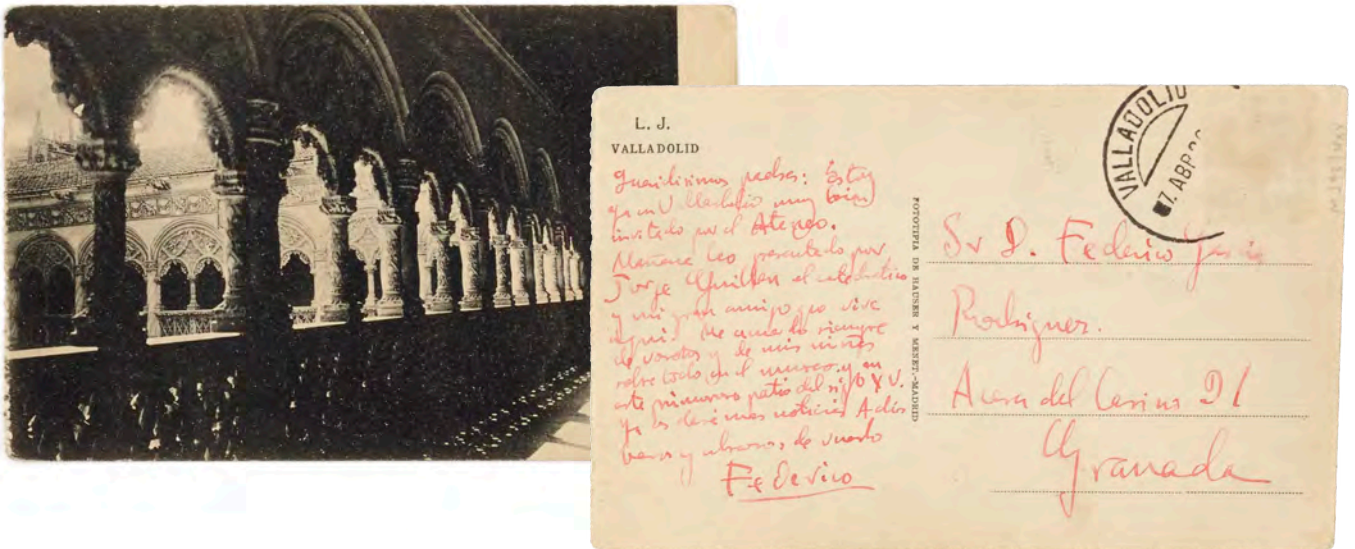 L. J.
VALLADOLID
Queridisimos padres: Estoy
ya en Valladolid muy bien
invitado por el Ateneo.
Mañana leo presentado por
Jorge Guillen el catedratico
y mi gran amigo que vive
aqui. Me acuerdo siempre
de vosotros y de mis niños
sobre todo en el museo y en
este primoroso patio del siglo XV.
Ya os daré mas noticias Adios
besos y abrazos de vuestro
Federico
FOTOTIPIA DE HAUSER Y MENET.-MADRID
VALLADOLID
7. ABR
Sr D. Federico Garcia
Rodriguez.
Acera del Casino 31
Granada